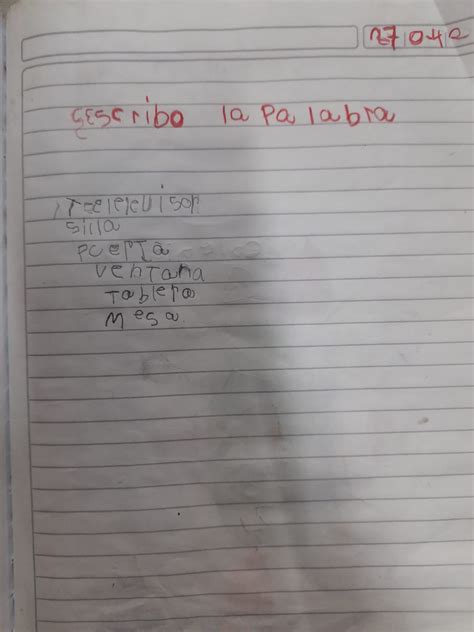 27 04 2
Escribo la palabra
Teelelevisor
silla
puerta
ventana
tablero
Mesa